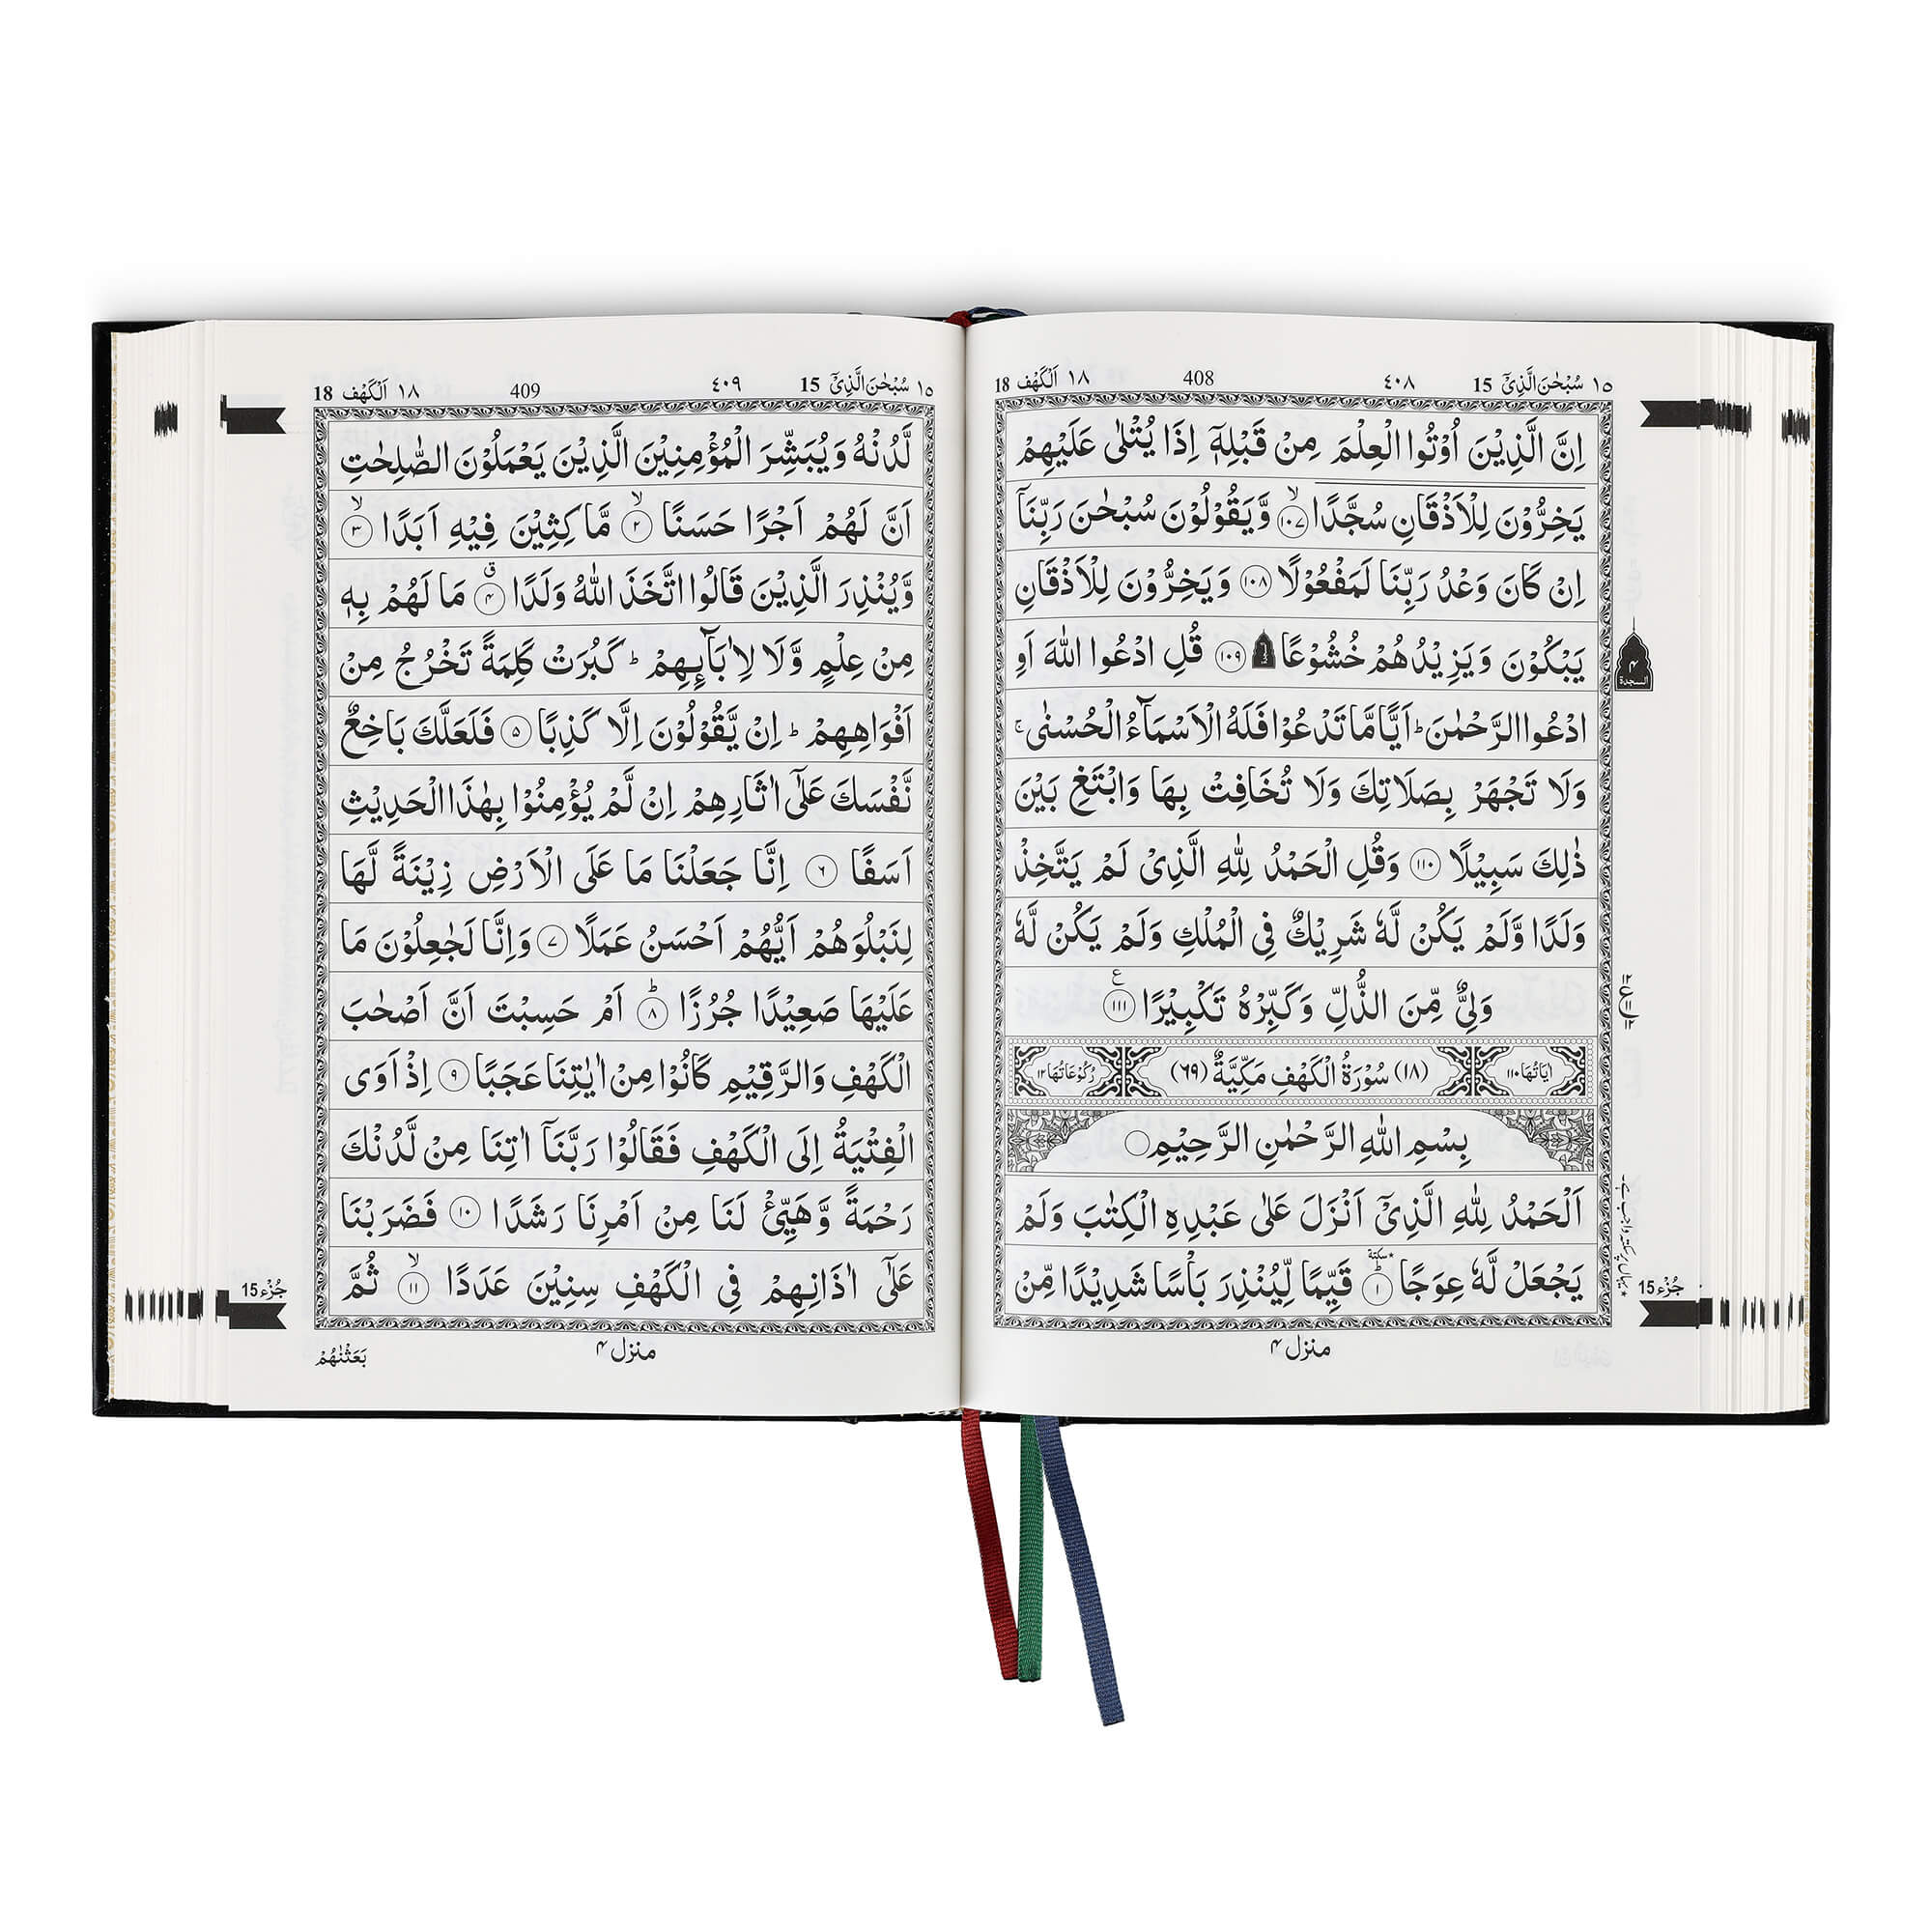 ١٥ سُبْحٰنَ الَّذِیْۤ 15 ٤٠٨ 408 ١٨ اَلْكَهْف 18
اِنَّ الَّذِیْنَ اُوْتُوا الْعِلْمَ مِنْ قَبْلِهٖۤ اِذَا یُتْلٰی عَلَیْهِمْ
یَخِرُّوْنَ لِلْاَذْقَانِ سُجَّدًا ۙ‏﴿۱۰۷﴾ وَّیَقُوْلُوْنَ سُبْحٰنَ رَبِّنَاۤ
اِنْ كَانَ وَعْدُ رَبِّنَا لَمَفْعُوْلًا ﴿۱۰۸﴾ وَیَخِرُّوْنَ لِلْاَذْقَانِ
یَبْكُوْنَ وَیَزِیْدُهُمْ خُشُوْعًا ۩ ﴿۱۰۹﴾ قُلِ ادْعُوا اللّٰهَ اَوِ
ادْعُوا الرَّحْمٰنَ ؕ اَیًّا مَّا تَدْعُوْا فَلَهُ الْاَسْمَآءُ الْحُسْنٰی ۚ
وَلَا تَجْهَرْ بِصَلَاتِكَ وَلَا تُخَافِتْ بِهَا وَابْتَغِ بَیْنَ
ذٰلِكَ سَبِیْلًا ﴿۱۱۰﴾ وَقُلِ الْحَمْدُ لِلّٰهِ الَّذِیْ لَمْ یَتَّخِذْ
وَلَدًا وَّلَمْ یَكُنْ لَّهٗ شَرِیْكٌ فِی الْمُلْكِ وَلَمْ یَكُنْ لَّهٗ
وَلِیٌّ مِّنَ الذُّلِّ وَكَبِّرْهُ تَكْبِیْرًا ﴿۱۱۱﴾ ع
اٰیَاتُهَا ١١٠ (١٨) سُوْرَةُ الْكَهْفِ مَكِّیَّةٌ (٦٩) رُكُوْعَاتُهَا ١٢
بِسْمِ اللّٰهِ الرَّحْمٰنِ الرَّحِیْمِ ○
اَلْحَمْدُ لِلّٰهِ الَّذِیْۤ اَنْزَلَ عَلٰی عَبْدِهِ الْكِتٰبَ وَلَمْ
یَجْعَلْ لَّهٗ عِوَجًا ؕ سكتة ﴿۱﴾ قَیِّمًا لِّیُنْذِرَ بَاْسًا شَدِیْدًا مِّنْ
منزل ۴
۴ السجدة
جُزْء 15
١٥ سُبْحٰنَ الَّذِیْۤ 15 ٤٠٩ 409 ١٨ اَلْكَهْف 18
لَّدُنْهُ وَیُبَشِّرَ الْمُؤْمِنِیْنَ الَّذِیْنَ یَعْمَلُوْنَ الصّٰلِحٰتِ
اَنَّ لَهُمْ اَجْرًا حَسَنًا ۙ‏﴿۲﴾ مَّاكِثِیْنَ فِیْهِ اَبَدًا ۙ‏﴿۳﴾
وَّیُنْذِرَ الَّذِیْنَ قَالُوا اتَّخَذَ اللّٰهُ وَلَدًا ق ﴿۴﴾ مَا لَهُمْ بِهٖ
مِنْ عِلْمٍ وَّلَا لِاٰبَآىِٕهِمْ ؕ كَبُرَتْ كَلِمَةً تَخْرُجُ مِنْ
اَفْوَاهِهِمْ ؕ اِنْ یَّقُوْلُوْنَ اِلَّا كَذِبًا ﴿۵﴾ فَلَعَلَّكَ بَاخِعٌ
نَّفْسَكَ عَلٰۤی اٰثَارِهِمْ اِنْ لَّمْ یُؤْمِنُوْا بِهٰذَا الْحَدِیْثِ
اَسَفًا ﴿۶﴾ اِنَّا جَعَلْنَا مَا عَلَی الْاَرْضِ زِیْنَةً لَّهَا
لِنَبْلُوَهُمْ اَیُّهُمْ اَحْسَنُ عَمَلًا ﴿۷﴾ وَاِنَّا لَجٰعِلُوْنَ مَا
عَلَیْهَا صَعِیْدًا جُرُزًا ؕ‏﴿۸﴾ اَمْ حَسِبْتَ اَنَّ اَصْحٰبَ
الْكَهْفِ وَالرَّقِیْمِ كَانُوْا مِنْ اٰیٰتِنَا عَجَبًا ﴿۹﴾ اِذْ اَوَی
الْفِتْیَةُ اِلَی الْكَهْفِ فَقَالُوْا رَبَّنَاۤ اٰتِنَا مِنْ لَّدُنْكَ
رَحْمَةً وَّهَیِّئْ لَنَا مِنْ اَمْرِنَا رَشَدًا ﴿۱۰﴾ فَضَرَبْنَا
عَلٰۤی اٰذَانِهِمْ فِی الْكَهْفِ سِنِیْنَ عَدَدًا ۙ‏﴿۱۱﴾ ثُمَّ
منزل ۴
بَعَثْنٰهُمْ
جُزْء 15